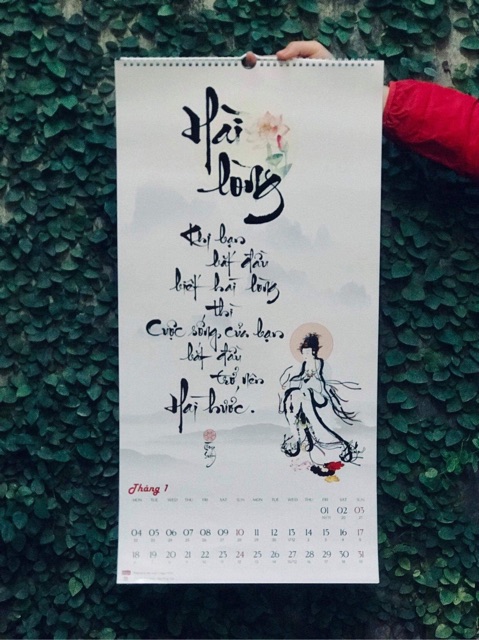 Hài
lòng
Khi bạn
bắt đầu
biết hài lòng
thì
Cuộc sống của bạn
bắt đầu
trở nên
Hài hước.
Tháng 1
MON TUE WED THU FRI SAT SUN MON TUE WED THU FRI SAT SUN
01 02 03
04 05 06 07 08 09 10 11 12 13 14 15 16 17
18 19 20 21 22 23 24 25 26 27 28 29 30 31